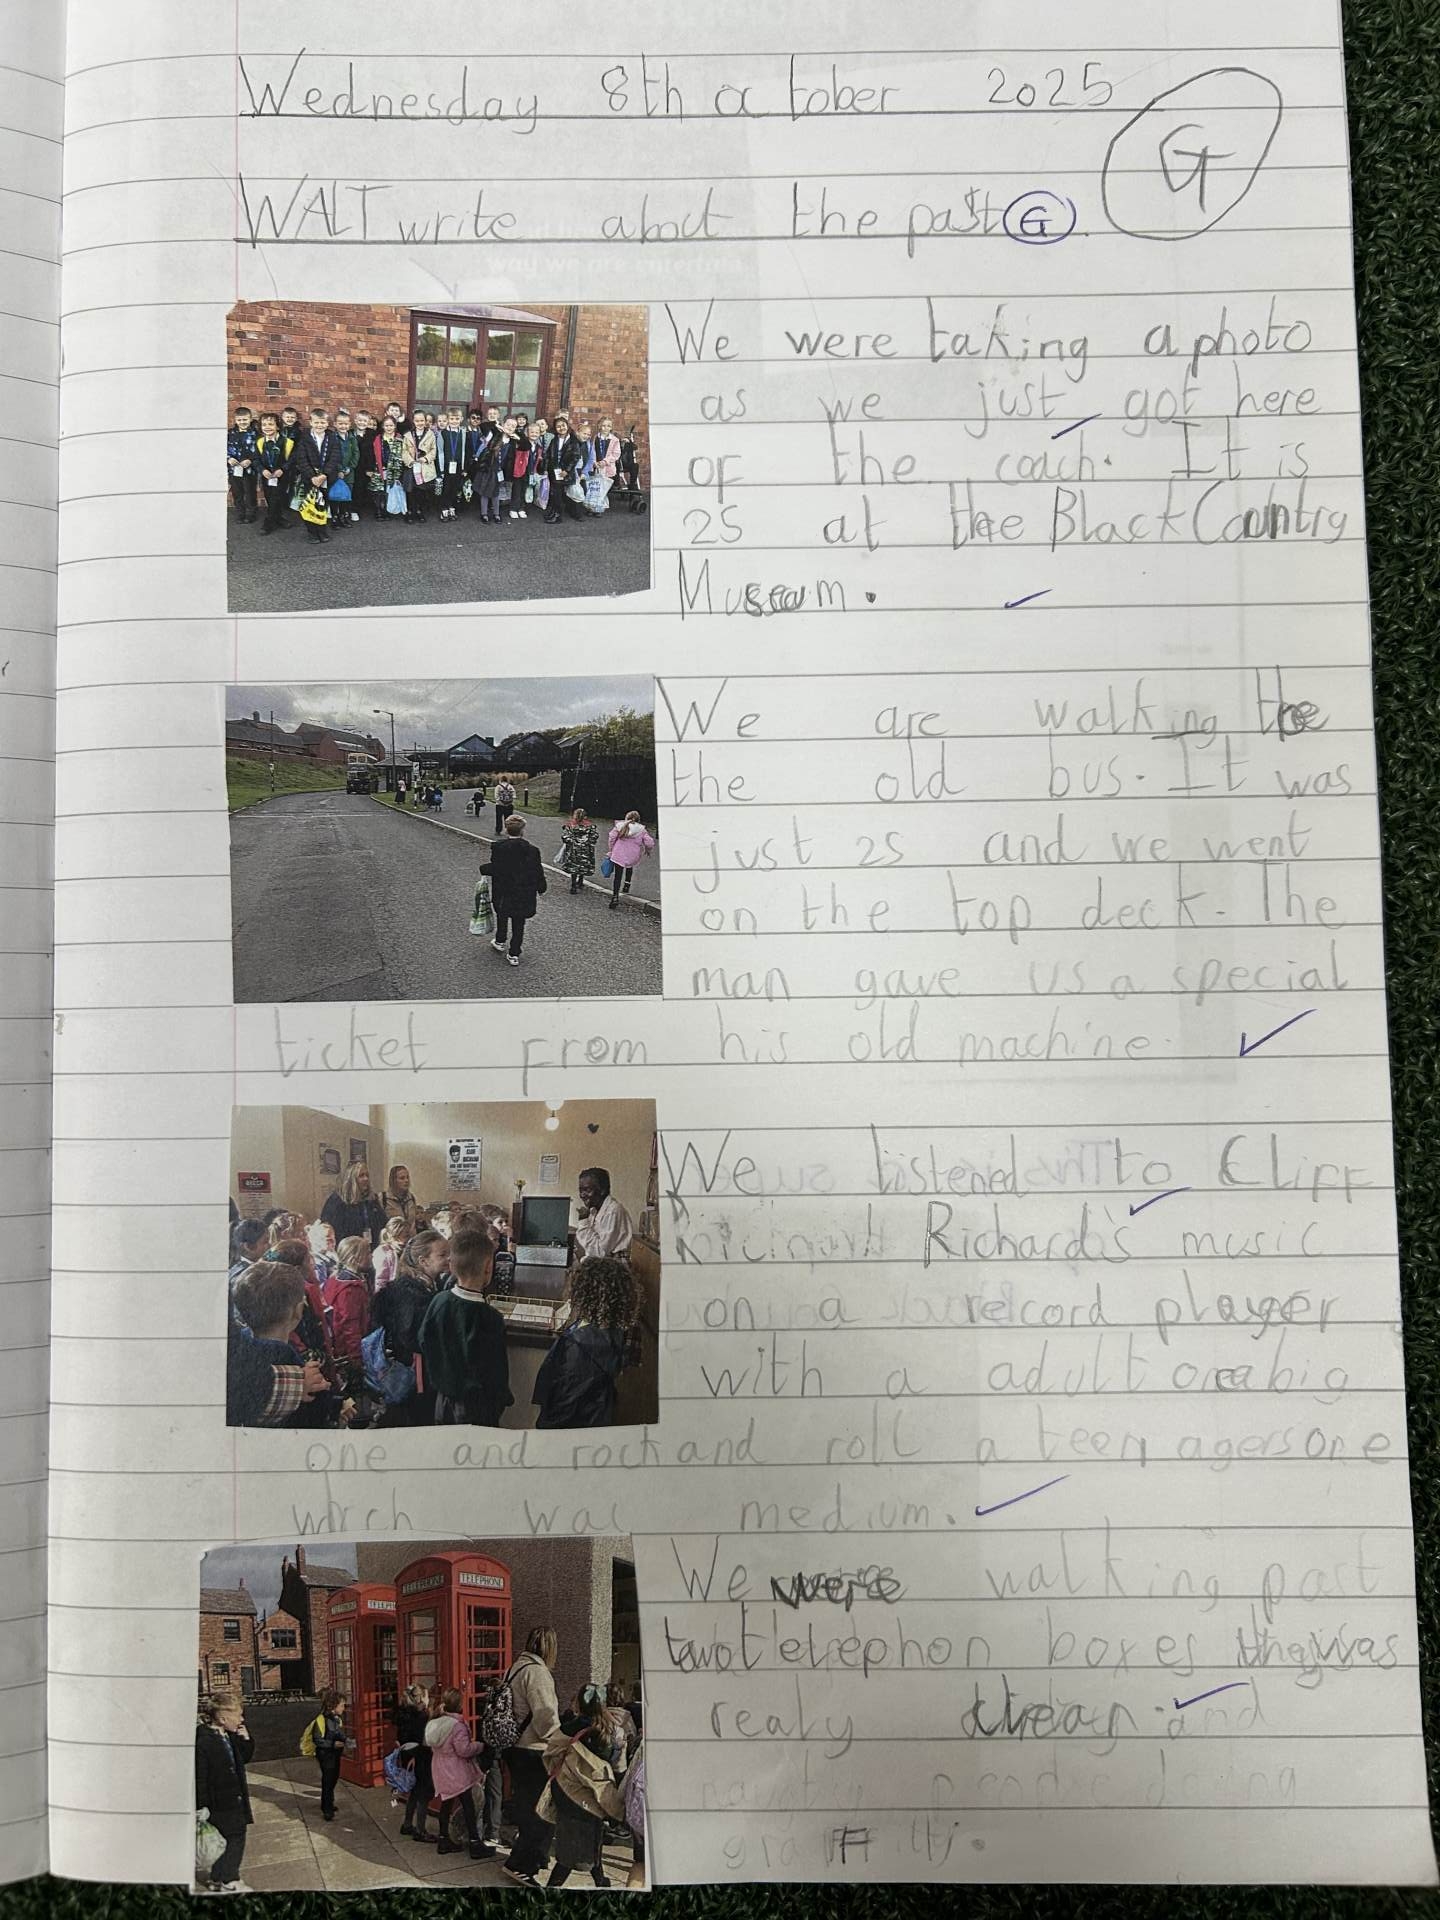 Wednesday 8th october 2025
G
WALT write about the past G
We were taking a photo
as we just got here
of the coach. It is
25 at the Black Country
Museum.
We are walking the
the old bus. It was
just 25 and we went
on the top deck. The
man gave us a special
ticket from his old machine.
We listened to Cliff
Richard's music
on a record player
with a adult one a big
one and rock and roll a teen agers one
which was medium.
We were walking past
two telephon boxes they was
realy clean and
graffitty.
TELEPHONE
TELEPHONE